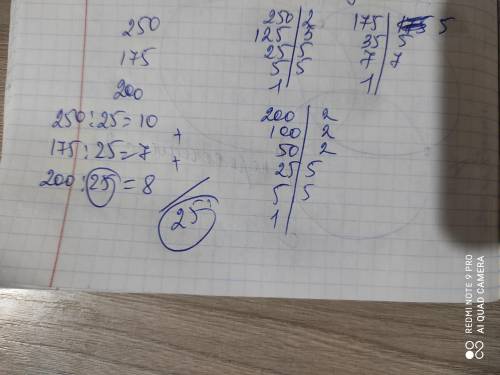 250
175
200
250 : 25 = 10
+
175 : 25 = 7
+
200 : 25 = 8
25
250 | 2
125 | 5
25 | 5
5 | 5
1
175 | 5
35 | 5
7 | 7
1
200 | 2
100 | 2
50 | 2
25 | 5
5 | 5
1
REDMI NOTE 9 PRO
AI QUAD CAMERA